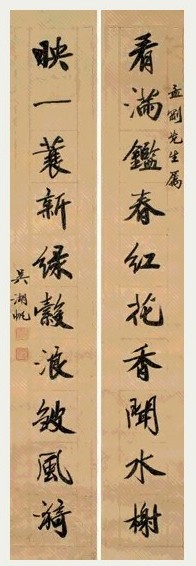 孟劬先生屬
看滿鑑春紅花香聞水榭
映一蓑新綠縠浪皺風漪
吳湖帆